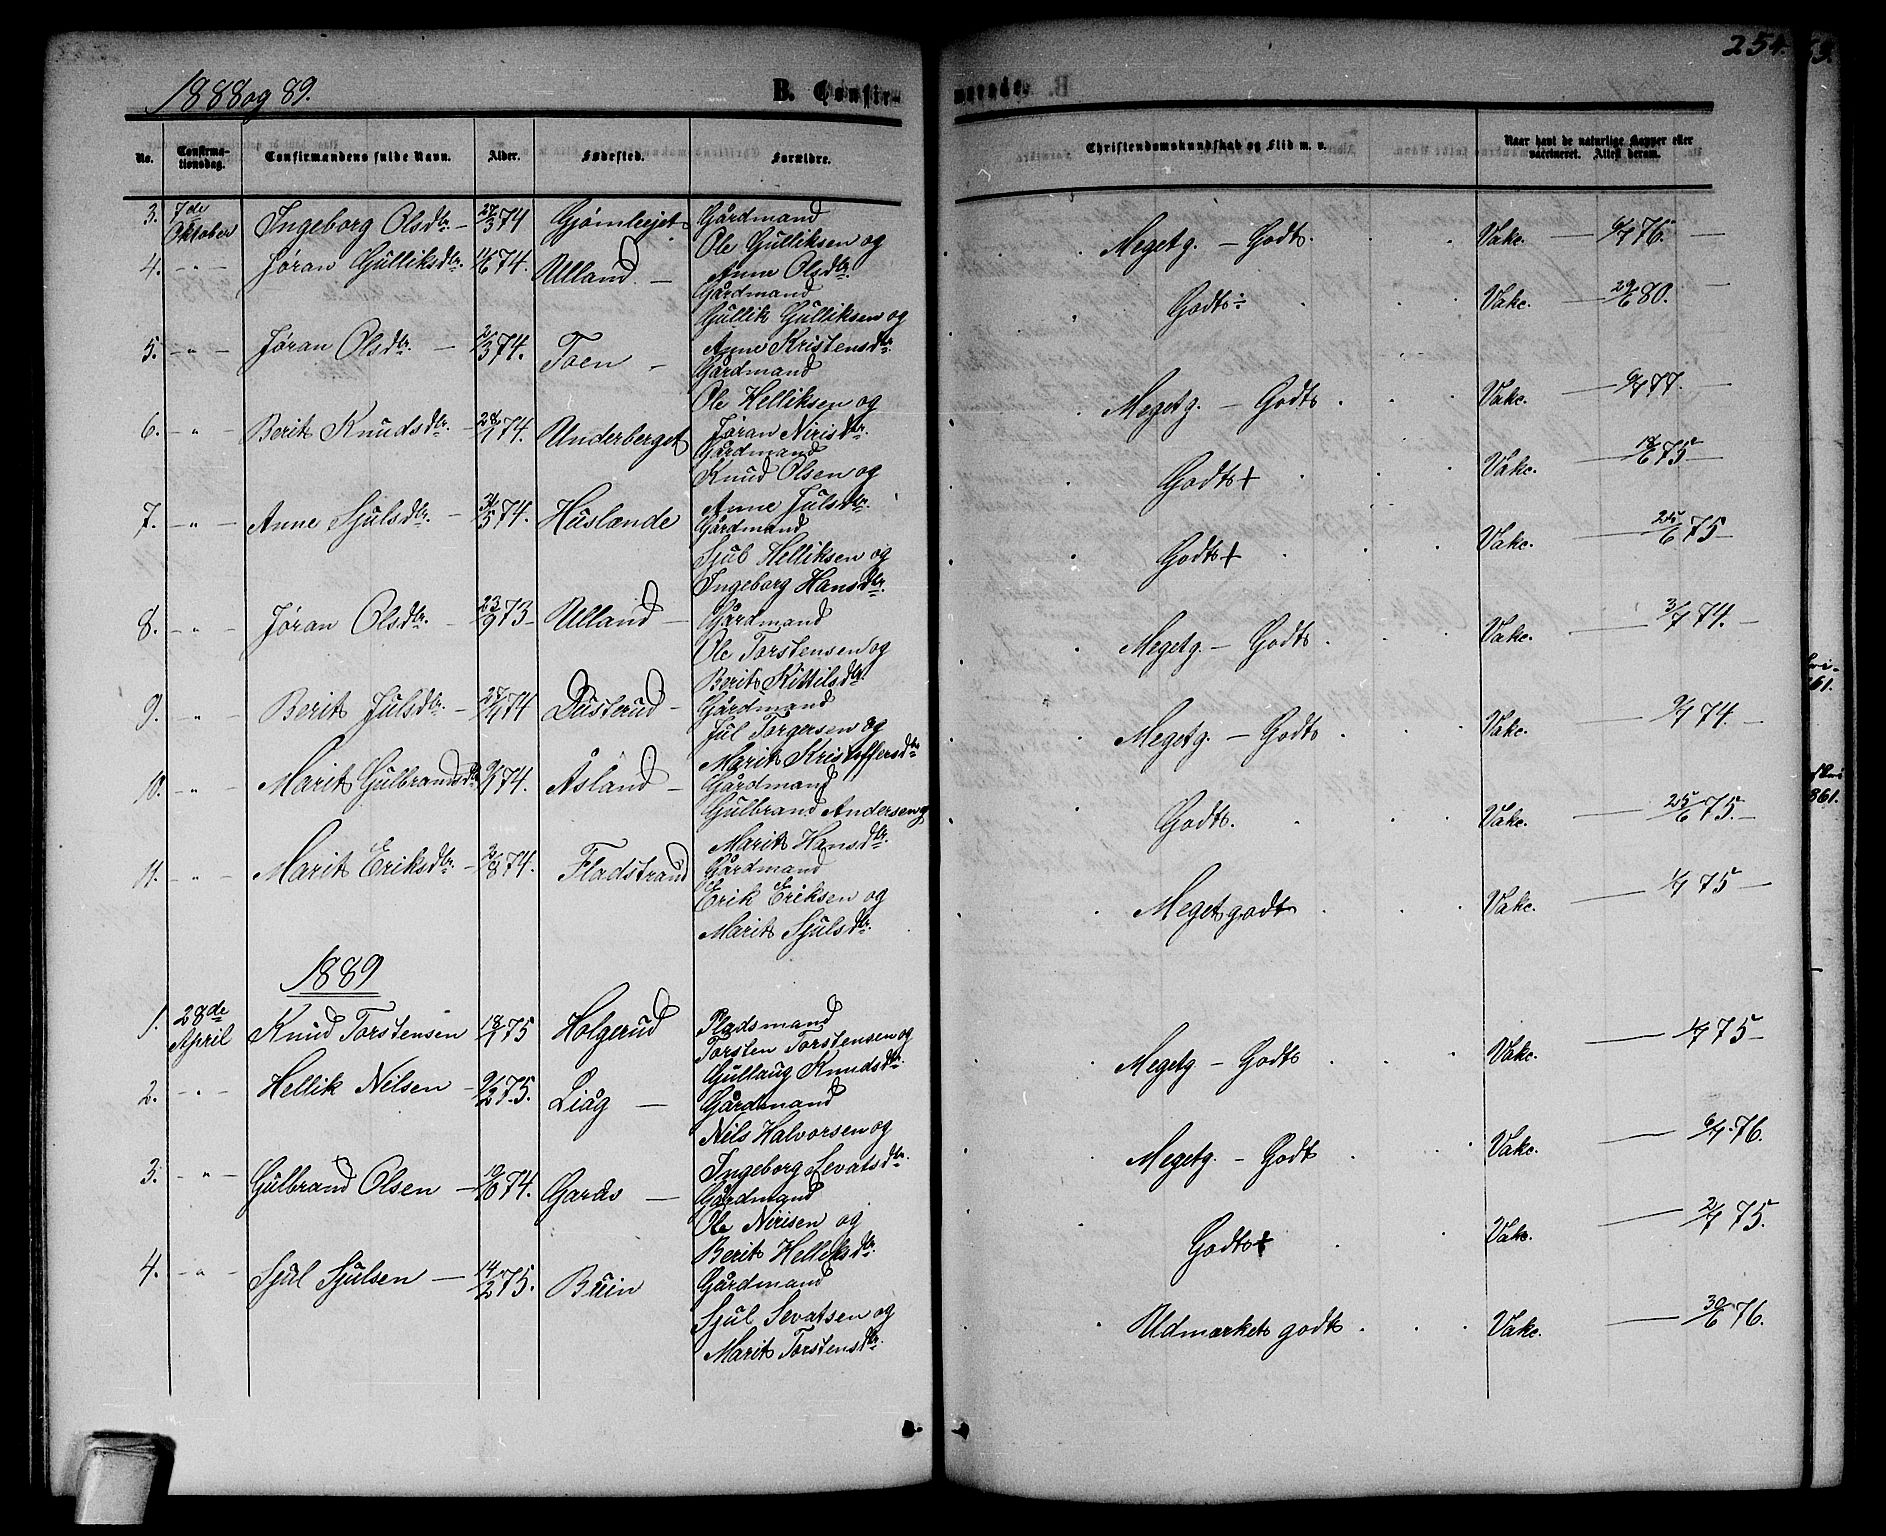 1888 og 89.
B. Confir-
merede.
254.
No. Confirma-tionsdag. Confirmandens fulde Navn. Alder. Fødested. Forældre. Christendomskundskab og Flid m. v. Naar havt de naturlige Kopper eller vaccineret. Attest derom.
3. 7de Oktober Ingeborg Olsdtr. 27/3 74 Gjømlejet Gårdmand
Ole Gulliksen og
Anne Olsdtr. Megetg. — Godt. Vakc. — 76.
4. " Jøran Gulliksdtr. 74. Ulland. — Gårdmand
Gullik Gulliksen og
Anne Kristensdtr. Godt ÷ Vakc. — 29/6 80.
5. " Jøran Olsdtr. — 74. Toen — Gårdmand
Ole Helliksen og
Jøran Nirisdtr. Megetg. — Godt. Vakc. — 77.
6. " Berit Knudsdtr. — 74. Underberget Gårdmand
Knud Olsen og
Anne Julsdtr. Godt + Vakc. — 18/6 75
7. " Anne Sjulsdtr. — 31/5 74. Huslande Gårdmand
Sjul Helliksen og
Ingeborg Hansdtr. Godt + Vakc. — 25/6 75
8. " Jøran Olsdtr. — 23/9 73 Ulland — Gårdmand
Ole Torstensen og
Berit Kittilsdtr. Megetg. — Godt. Vakc. — 3/7 74.
9. " Berit Julsdtr. — 74 Dusterud — Gårdmand
Jul Torgersen og
Marit Kristoffersdtr. Megetg. — Godt Vakc. — 74.
10. " Marit Gulbrandsdtr. 74. Åsland — Gårdmand
Gulbrand Andersen og
Marit Hansdtr. Godt. Vakc. — 25/6 75.
11. " Marit Eriksdtr. — 74. Fladstrand Gårdmand
Erik Eriksen og
Marit Sjulsdtr. Meget godt Vakc. — 75
1889
1. 28de April Knud Torstensen 18/1 75 Holgerud Pladsmand
Torsten Torstensen og
Gullaug Knudsdtr. Megetg — Godt Vakc. — 75
2. " Hellik Nilsen — 75. Liåg — Gårdmand
Nils Halvorsen og
Ingeborg Sevatsdtr. Megetg. — Godt Vakc. — 76.
3. " Gulbrand Olsen — 74. Gards — Gårdmand
Ole Nirisen og
Berit Helliksdtr. Godt + Vakc. — 2/7 75.
4. " Sjul Sjulsen — 14/2 75. Buin Gårdmand
Sjul Sevatsen og
Marit Torstensdtr. Udmærket godt. Vakc. — 30/6 76.
861.